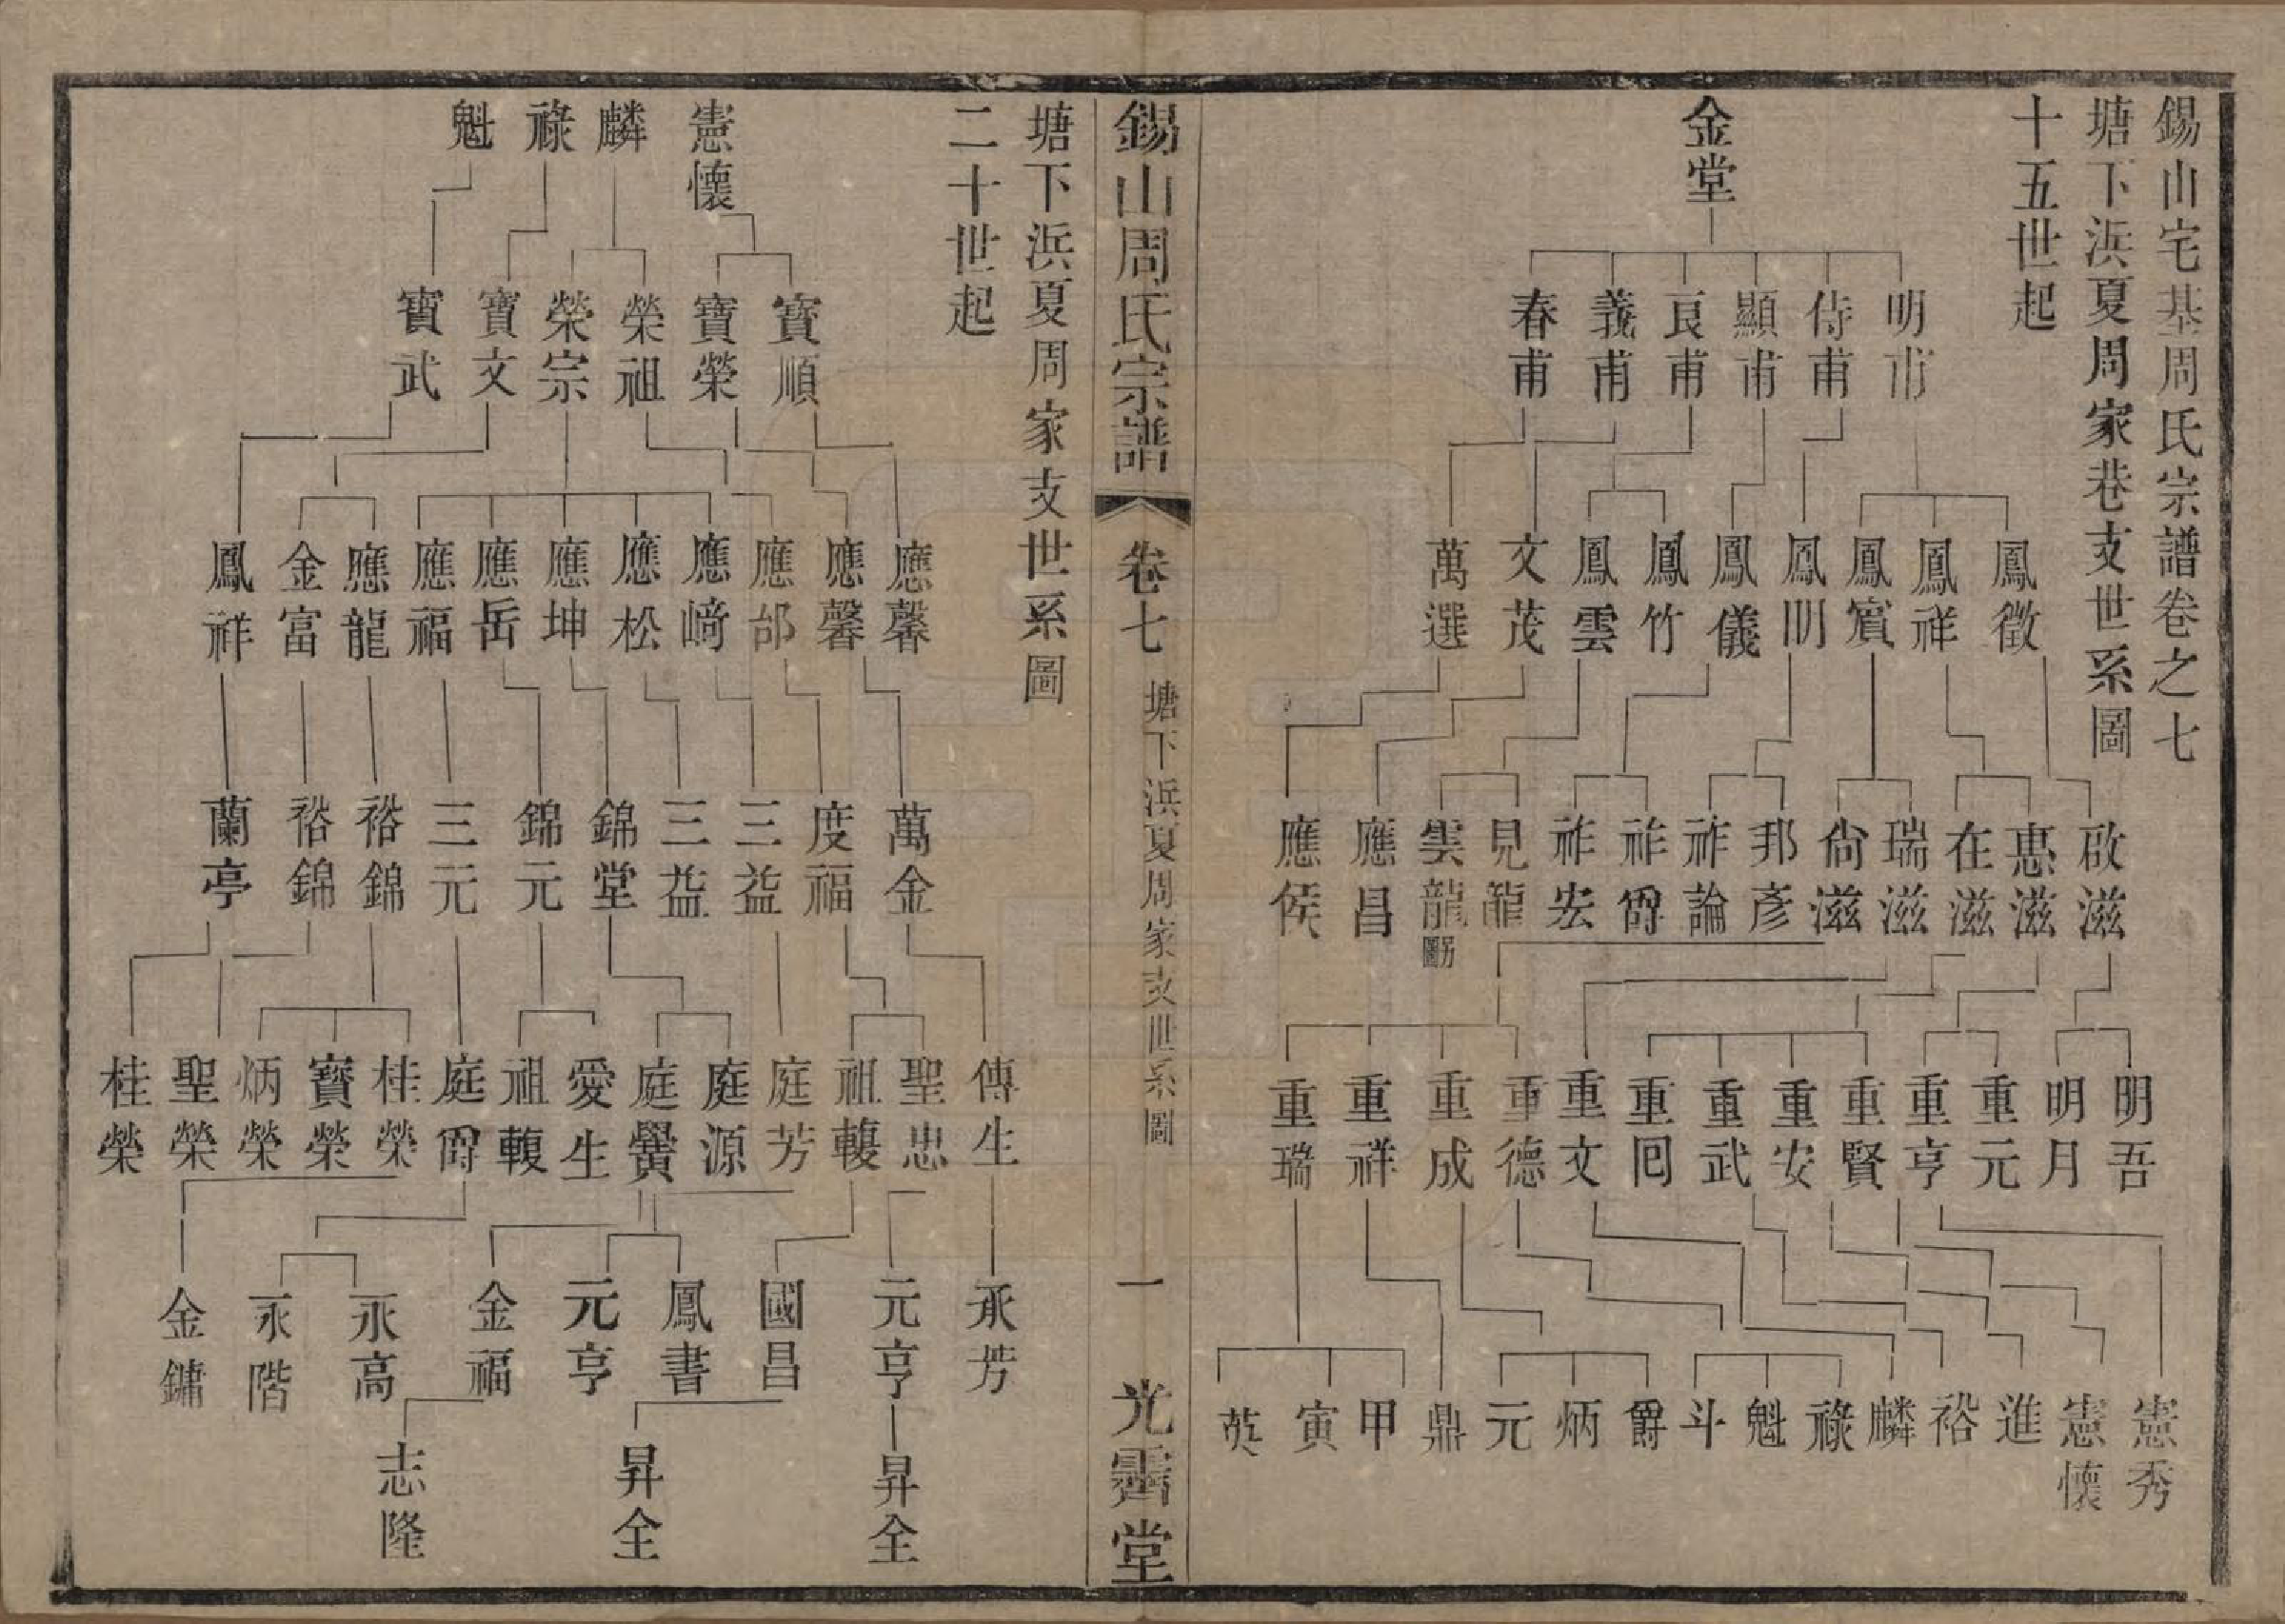 錫山宅基周氏宗譜卷之七
塘下浜夏周家巷支世系圖
十五世起
金堂
明甫
侍甫
顯甫
良甫
義甫
春甫
鳳徵
鳳祥
鳳賓
鳳明
鳳儀
鳳竹
鳳雲
文茂
萬選
啟滋
惠滋
在滋
瑞滋
尙滋
邦彥
祚論
祚爵
祚宏
見龍
雲龍
應昌
應侯
明吾
明月
重元
重亨
重賢
重安
重武
重回
重文
重德
重成
重祥
重瑞
憲秀
憲懷
進
裕
麟
祿
魁
斗
爵
炳
元
鼎
甲
寅
英
錫山周氏宗譜
卷七
塘下浜夏周家支世系圖
一
光霽堂
塘下浜夏周家支世系圖
二十世起
憲懷
麟
祿
魁
寶順
寶榮
榮祖
榮宗
寶文
寶武
應馨
應馨
應邰
應﨑
應松
應坤
應岳
應福
應龍
金富
鳳祥
萬金
度福
三益
三益
錦堂
錦元
三元
裕錦
裕錦
蘭亭
傳生
聖忠
祖轅
庭芳
庭源
庭黌
愛生
祖轅
庭爵
桂榮
寶榮
炳榮
聖榮
桂榮
承芳
元亨
國昌
鳳書
元亨
金福
永高
永階
金鏞
昇全
昇全
志隆